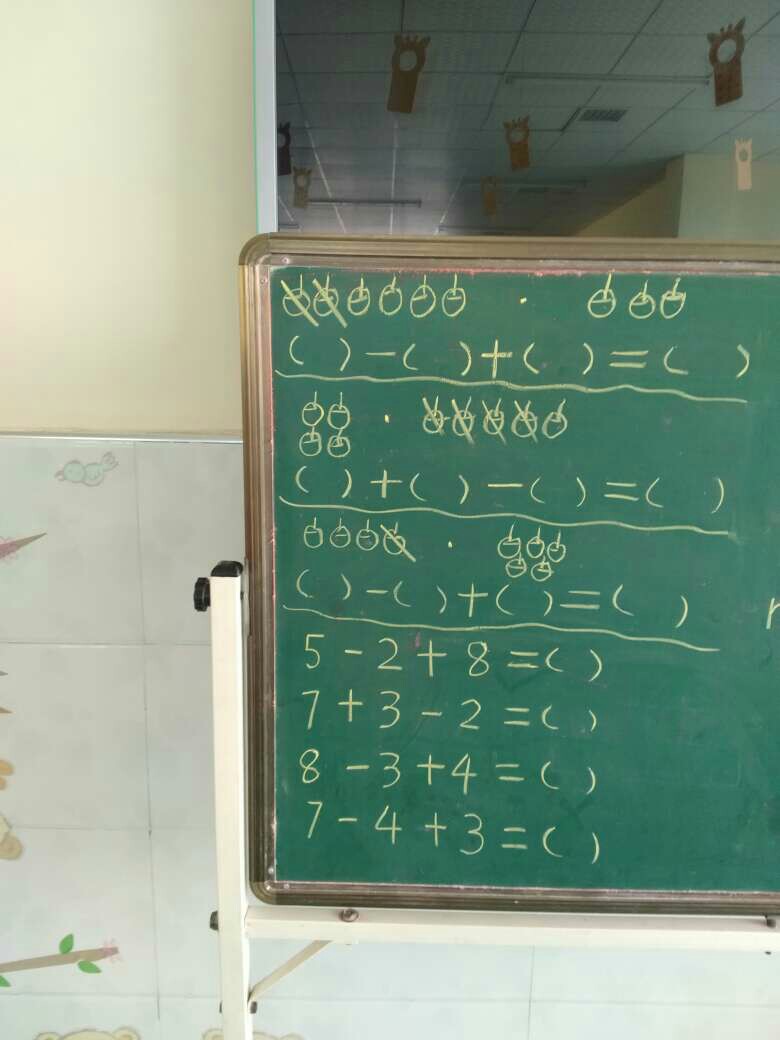 ( ) - ( ) + ( ) = ( )
( ) + ( ) - ( ) = ( )
( ) - ( ) + ( ) = ( )
5 - 2 + 8 = ( )
7 + 3 - 2 = ( )
8 - 3 + 4 = ( )
7 - 4 + 3 = ( )